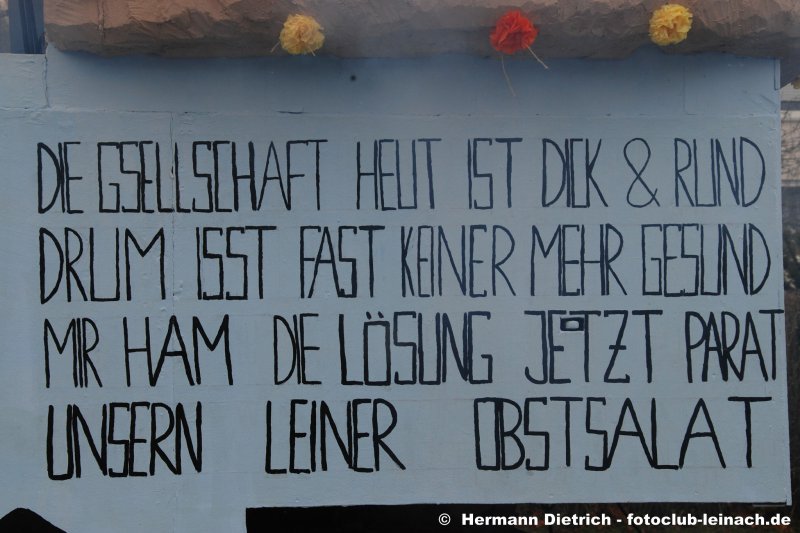 DIE GSELLSCHAFT HEUT IST DICK & RUND
DRUM ISST FAST KEINER MEHR GESUND
MIR HAM DIE LÖSUNG JETZT PARAT
UNSERN LEINER OBSTSALAT
© Hermann Dietrich - fotoclub-leinach.de